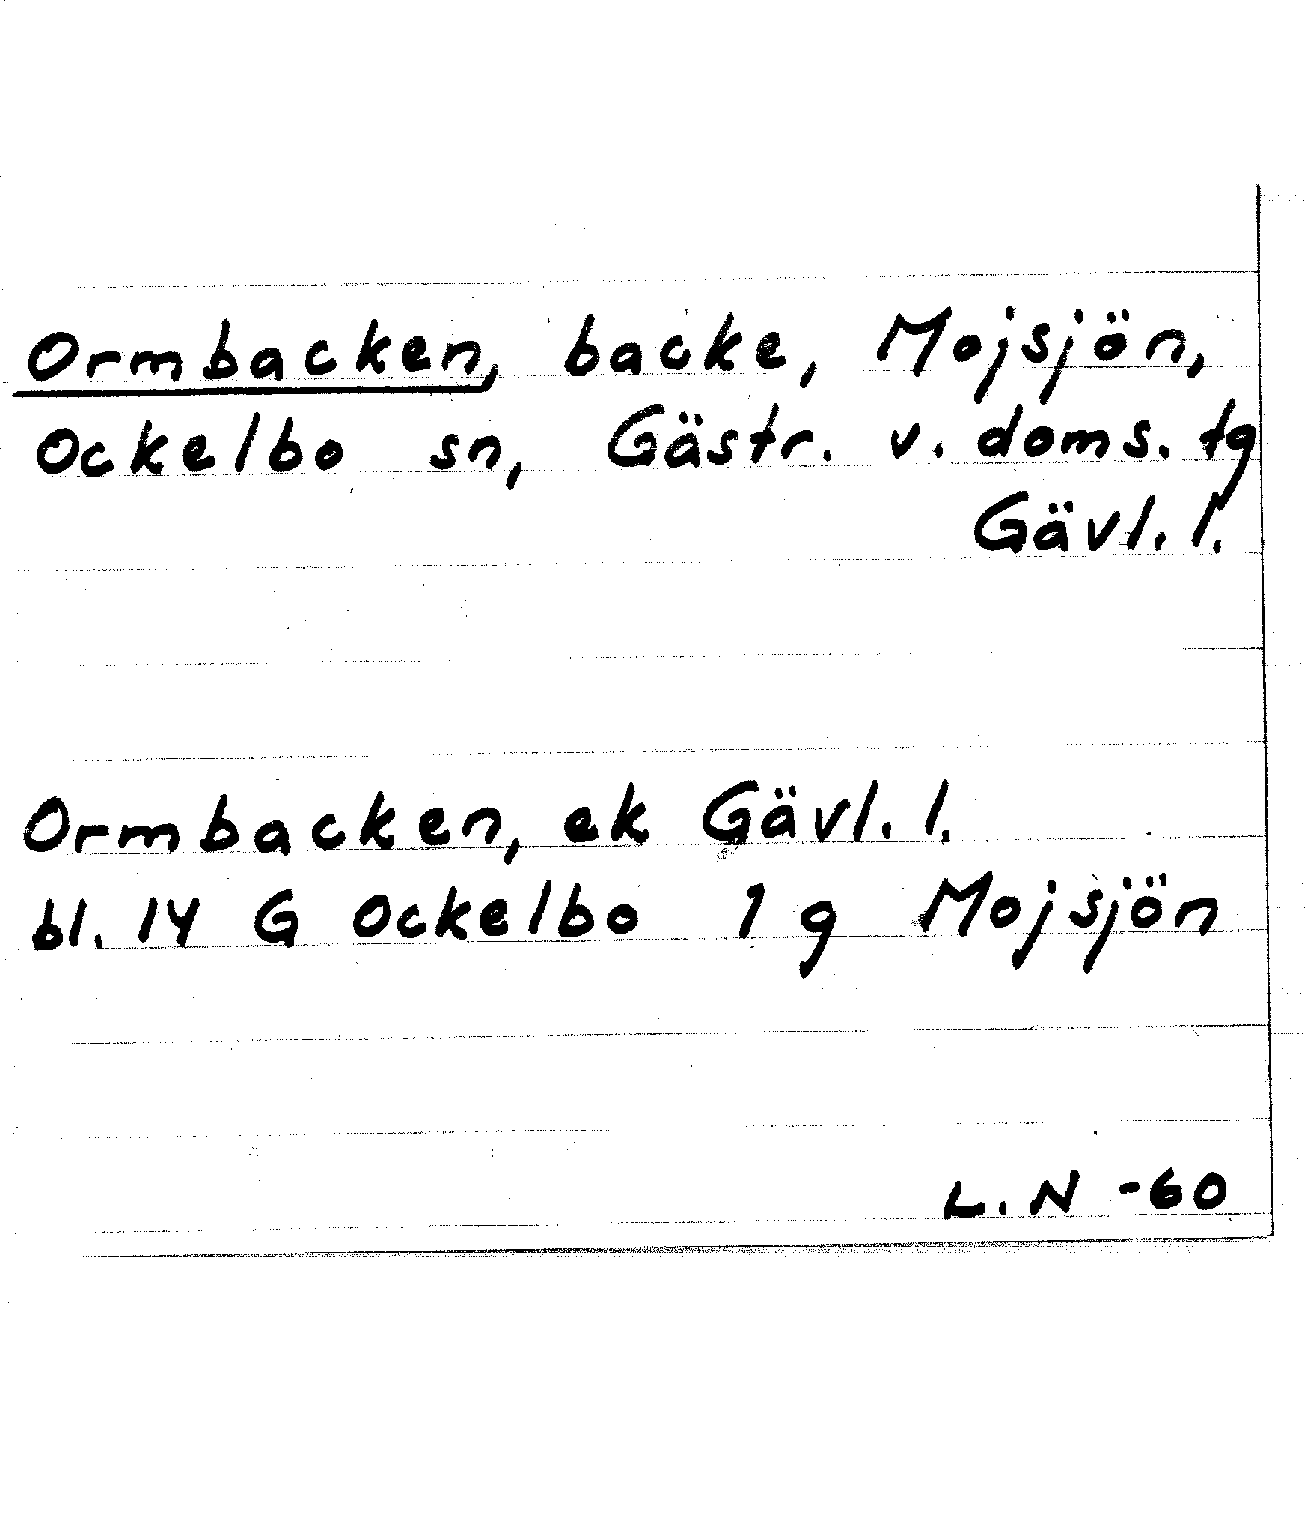 Ormbacken, backe, Mojsjön,
Ockelbo sn, Gästr. v. doms. tg
Gävl. l.
Ormbacken, ek Gävl. l.
bl. 14 G Ockelbo 1 g Mojsjön
L. N -60